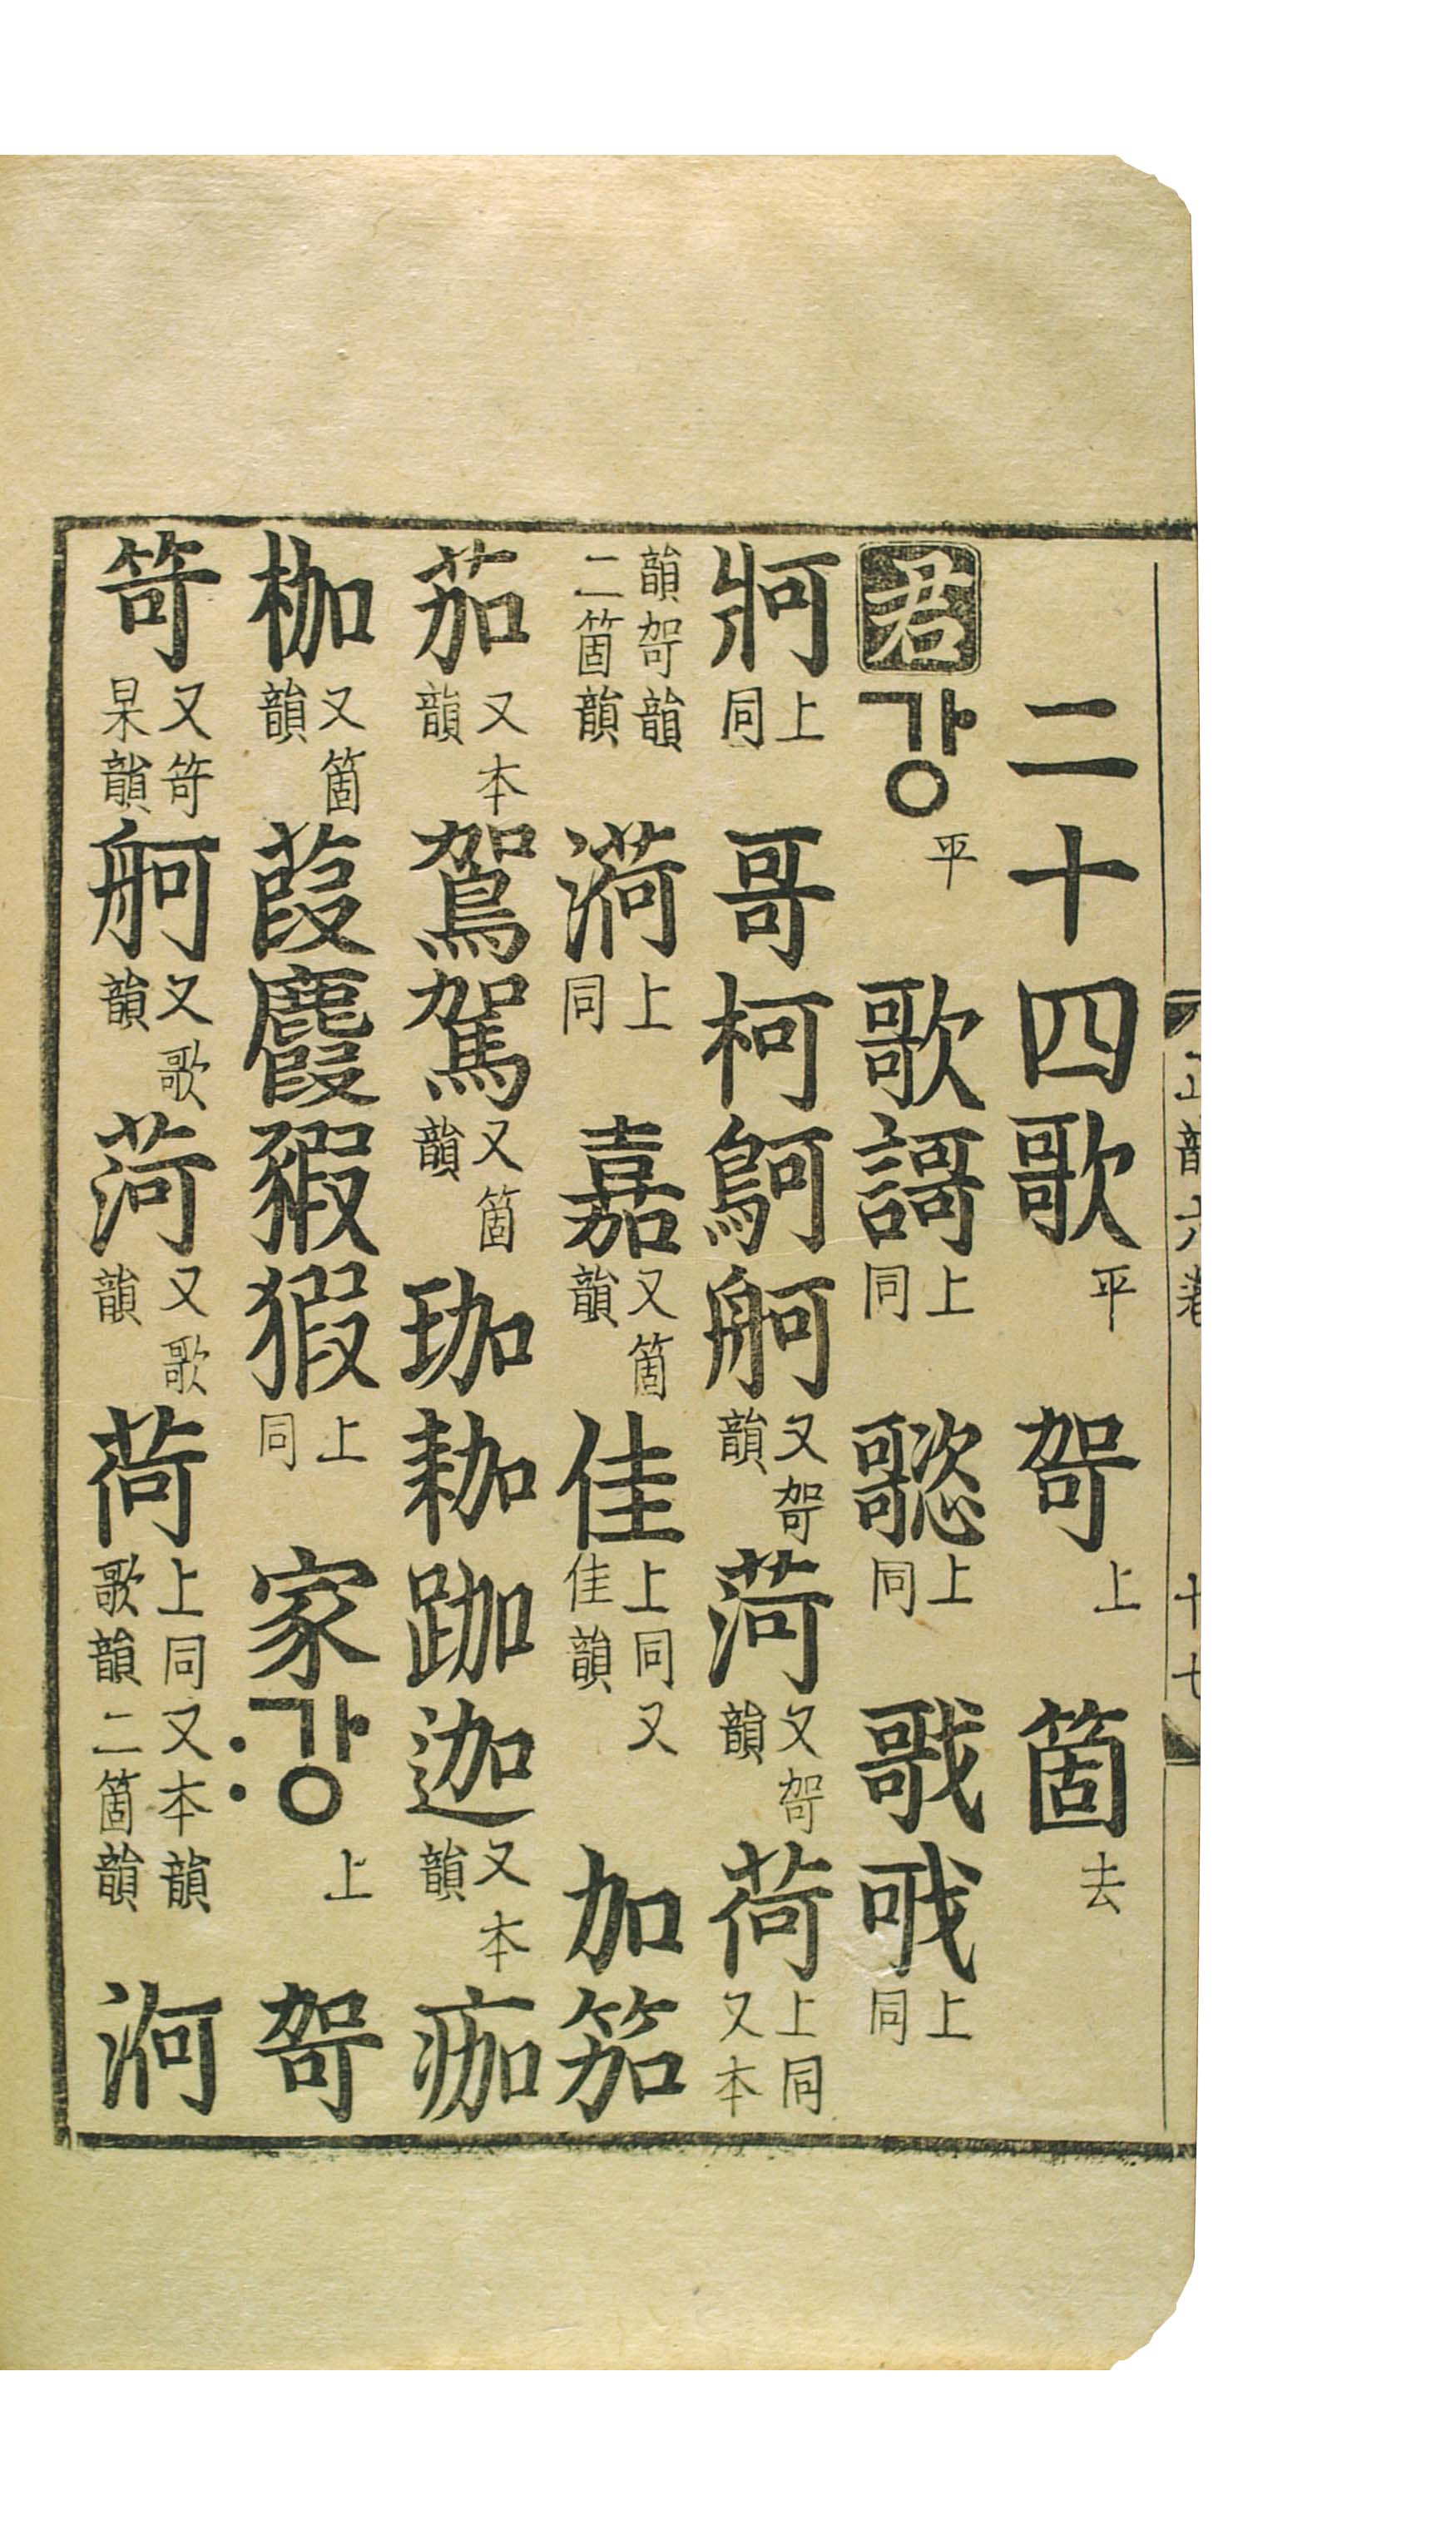 正韻六卷 十七
二十四歌平 哿上 箇去
君강平 歌謌上同 上同 戨戓上同
牁上同 哥柯鴚舸又哿韻菏又哿韻荷上同又本
韻哿韻二箇韻 渮上同 嘉又箇韻佳上同又佳韻 加笳
茄又本韻鴐駕又箇韻珈耞跏迦又本韻痂
枷又箇韻葭麚豭猳上同 家강〯上 哿
笴又笴杲韻舸又歌韻菏又歌韻荷上同又本韻歌韻二箇韻 河